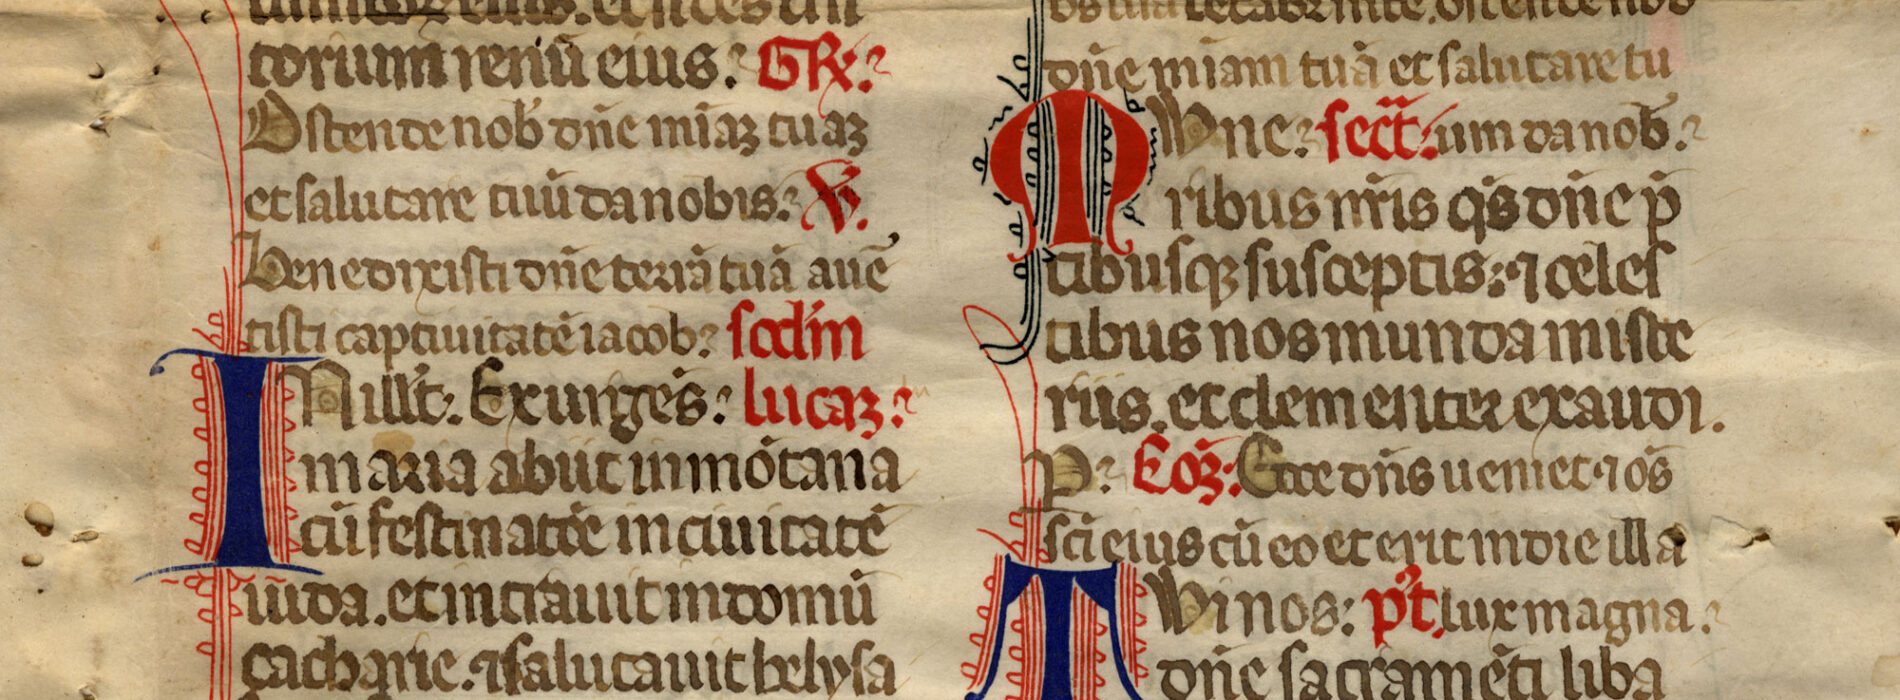 torum renū eius. GR̃.
Ostende nob̄ dn̄e mīaꝫ tuaꝫ
et salutare tuū da nobis. V̄.
Benedixisti dn̄e terrā tuā aue
tisti captiuitatē iacob. scd̄m
IN ill̄ t̄. Exurgēs: lucaꝫ.
maria abiit in mōtana
cū festinatōe in ciuitatē
iuda. et intrauit in domū
çacharie. ⁊ salutauit helysa
dn̄e mīam tuā et salutare tu
Mune: secr̄t: um da nob̄.
ribus nr̄is qs̄ dn̄e p̄
tibusqꝫ susceptis: ⁊ celes
tibus nos munda miste
riis. et clementer exaudi.
P. Cōꝫ: Ecce dn̄s ueniet ⁊ o͞s
sc̄i eius cū eo et erit in die illa
Wi nos: p̄t. lux magna.
dn̄e sacramēti liba